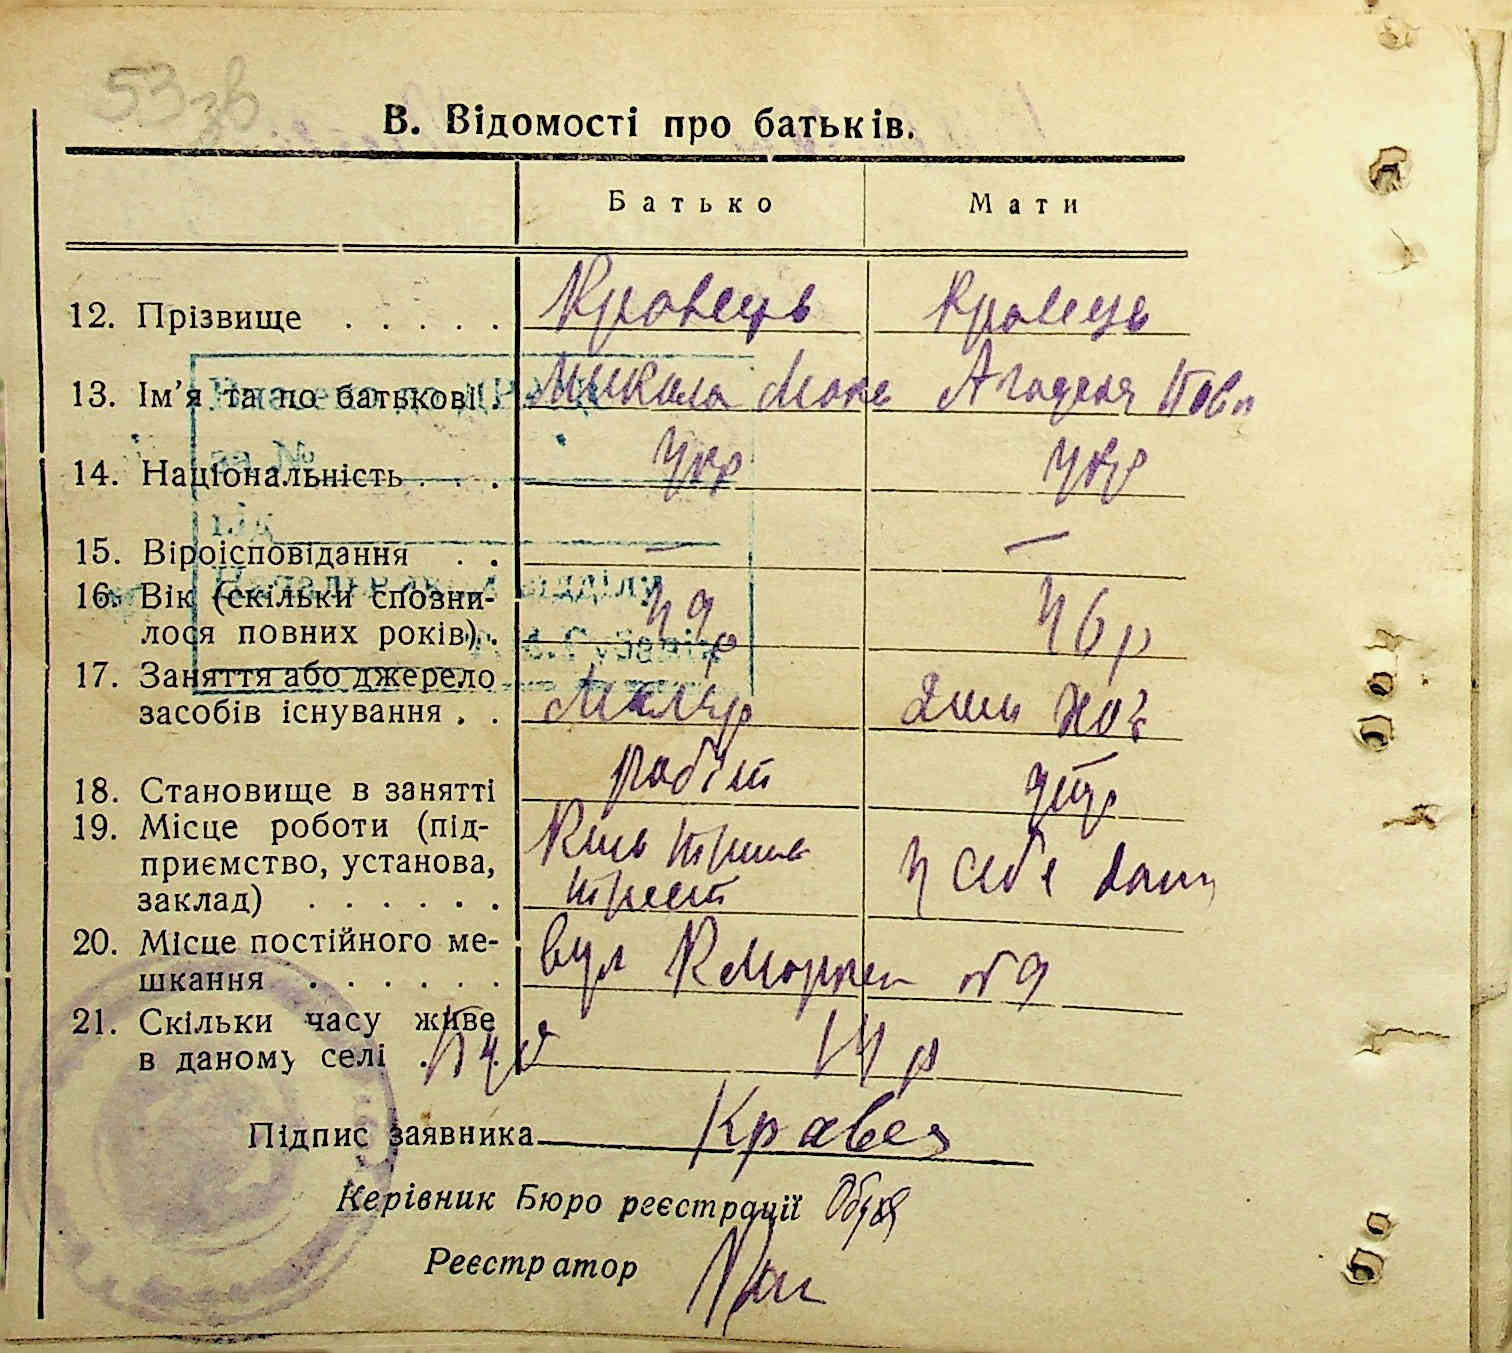 53 зв
В. Відомості про батьків.
Батько Мати
12. Прізвище . . . . . Кравець Кравець
13. Ім'я та по батькові . Микола Мак Агафія Пав
14. Національність . . . Укр Укр
15. Віроісповідання . . — —
16. Вік (скільки сповни-
лося повних років) . 49 р 46 р
17. Заняття або джерело
засобів існування . . Маляр Дом гос
18. Становище в занятті робіт утр
19. Місце роботи (під-
приємство, установа,
заклад) . . . . . . трест у себе дома
20. Місце постійного ме-
шкання . . . . . . вул К Маркса № 9
21. Скільки часу живе
в даному селі . 14 р
Підпис заявника Кравец
Керівник Бюро реєстрації
Реєстратор